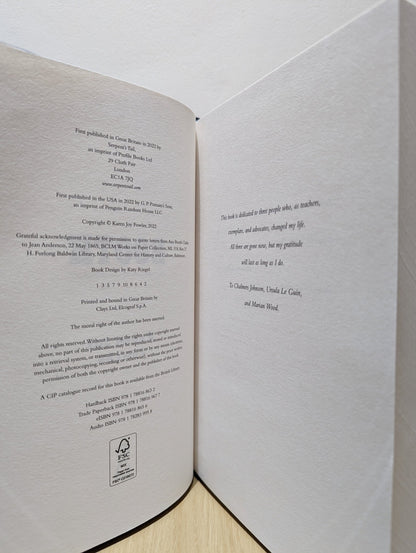 First published in Great Britain in 2022 by
Serpent's Tail,
an imprint of Profile Books Ltd
29 Cloth Fair
London
EC1A 7JQ
www.serpentstail.com
First published in the USA in 2022 by G. P. Putnam's Sons,
an imprint of Penguin Random House LLC.
Copyright © Karen Joy Fowler, 2022
Grateful acknowledgment is made for permission to quote letters from Asia Booth Clarke
to Jean Anderson, 22 May 1865, BCLM Works on Paper Collection, MS
H. Furlong Baldwin Library, Maryland Center for History and Culture, Baltimore.
Book Design by Katy Riegel
1 3 5 7 9 10 8 6 4 2
Printed and bound in Great Britain by
Clays Ltd, Elcograf S.p.A.
The moral right of the author has been asserted.
All rights reserved. Without limiting the rights under copyright reserved
above, no part of this publication may be reproduced, stored or introduced
into a retrieval system, or transmitted, in any form or by any means (electronic,
mechanical, photocopying, recording or otherwise), without the prior written
permission of both the copyright owner and the publisher of the book.
A CIP catalogue record for this book is available from the British Library.
Hardback ISBN 978 1 78816 965 3
Trade Paperback ISBN 978 1 78816 967 7
eISBN 978 1 78283
Audio ISBN 978 1 78283
FSC
MIX
This book is dedicated to three people who, as teachers,
exemplars, and advocates, changed my life.
All three are gone now, but my gratitude
will last as long as I do.
To Chalmers Johnson, Ursula Le Guin,
and Marian Wood.